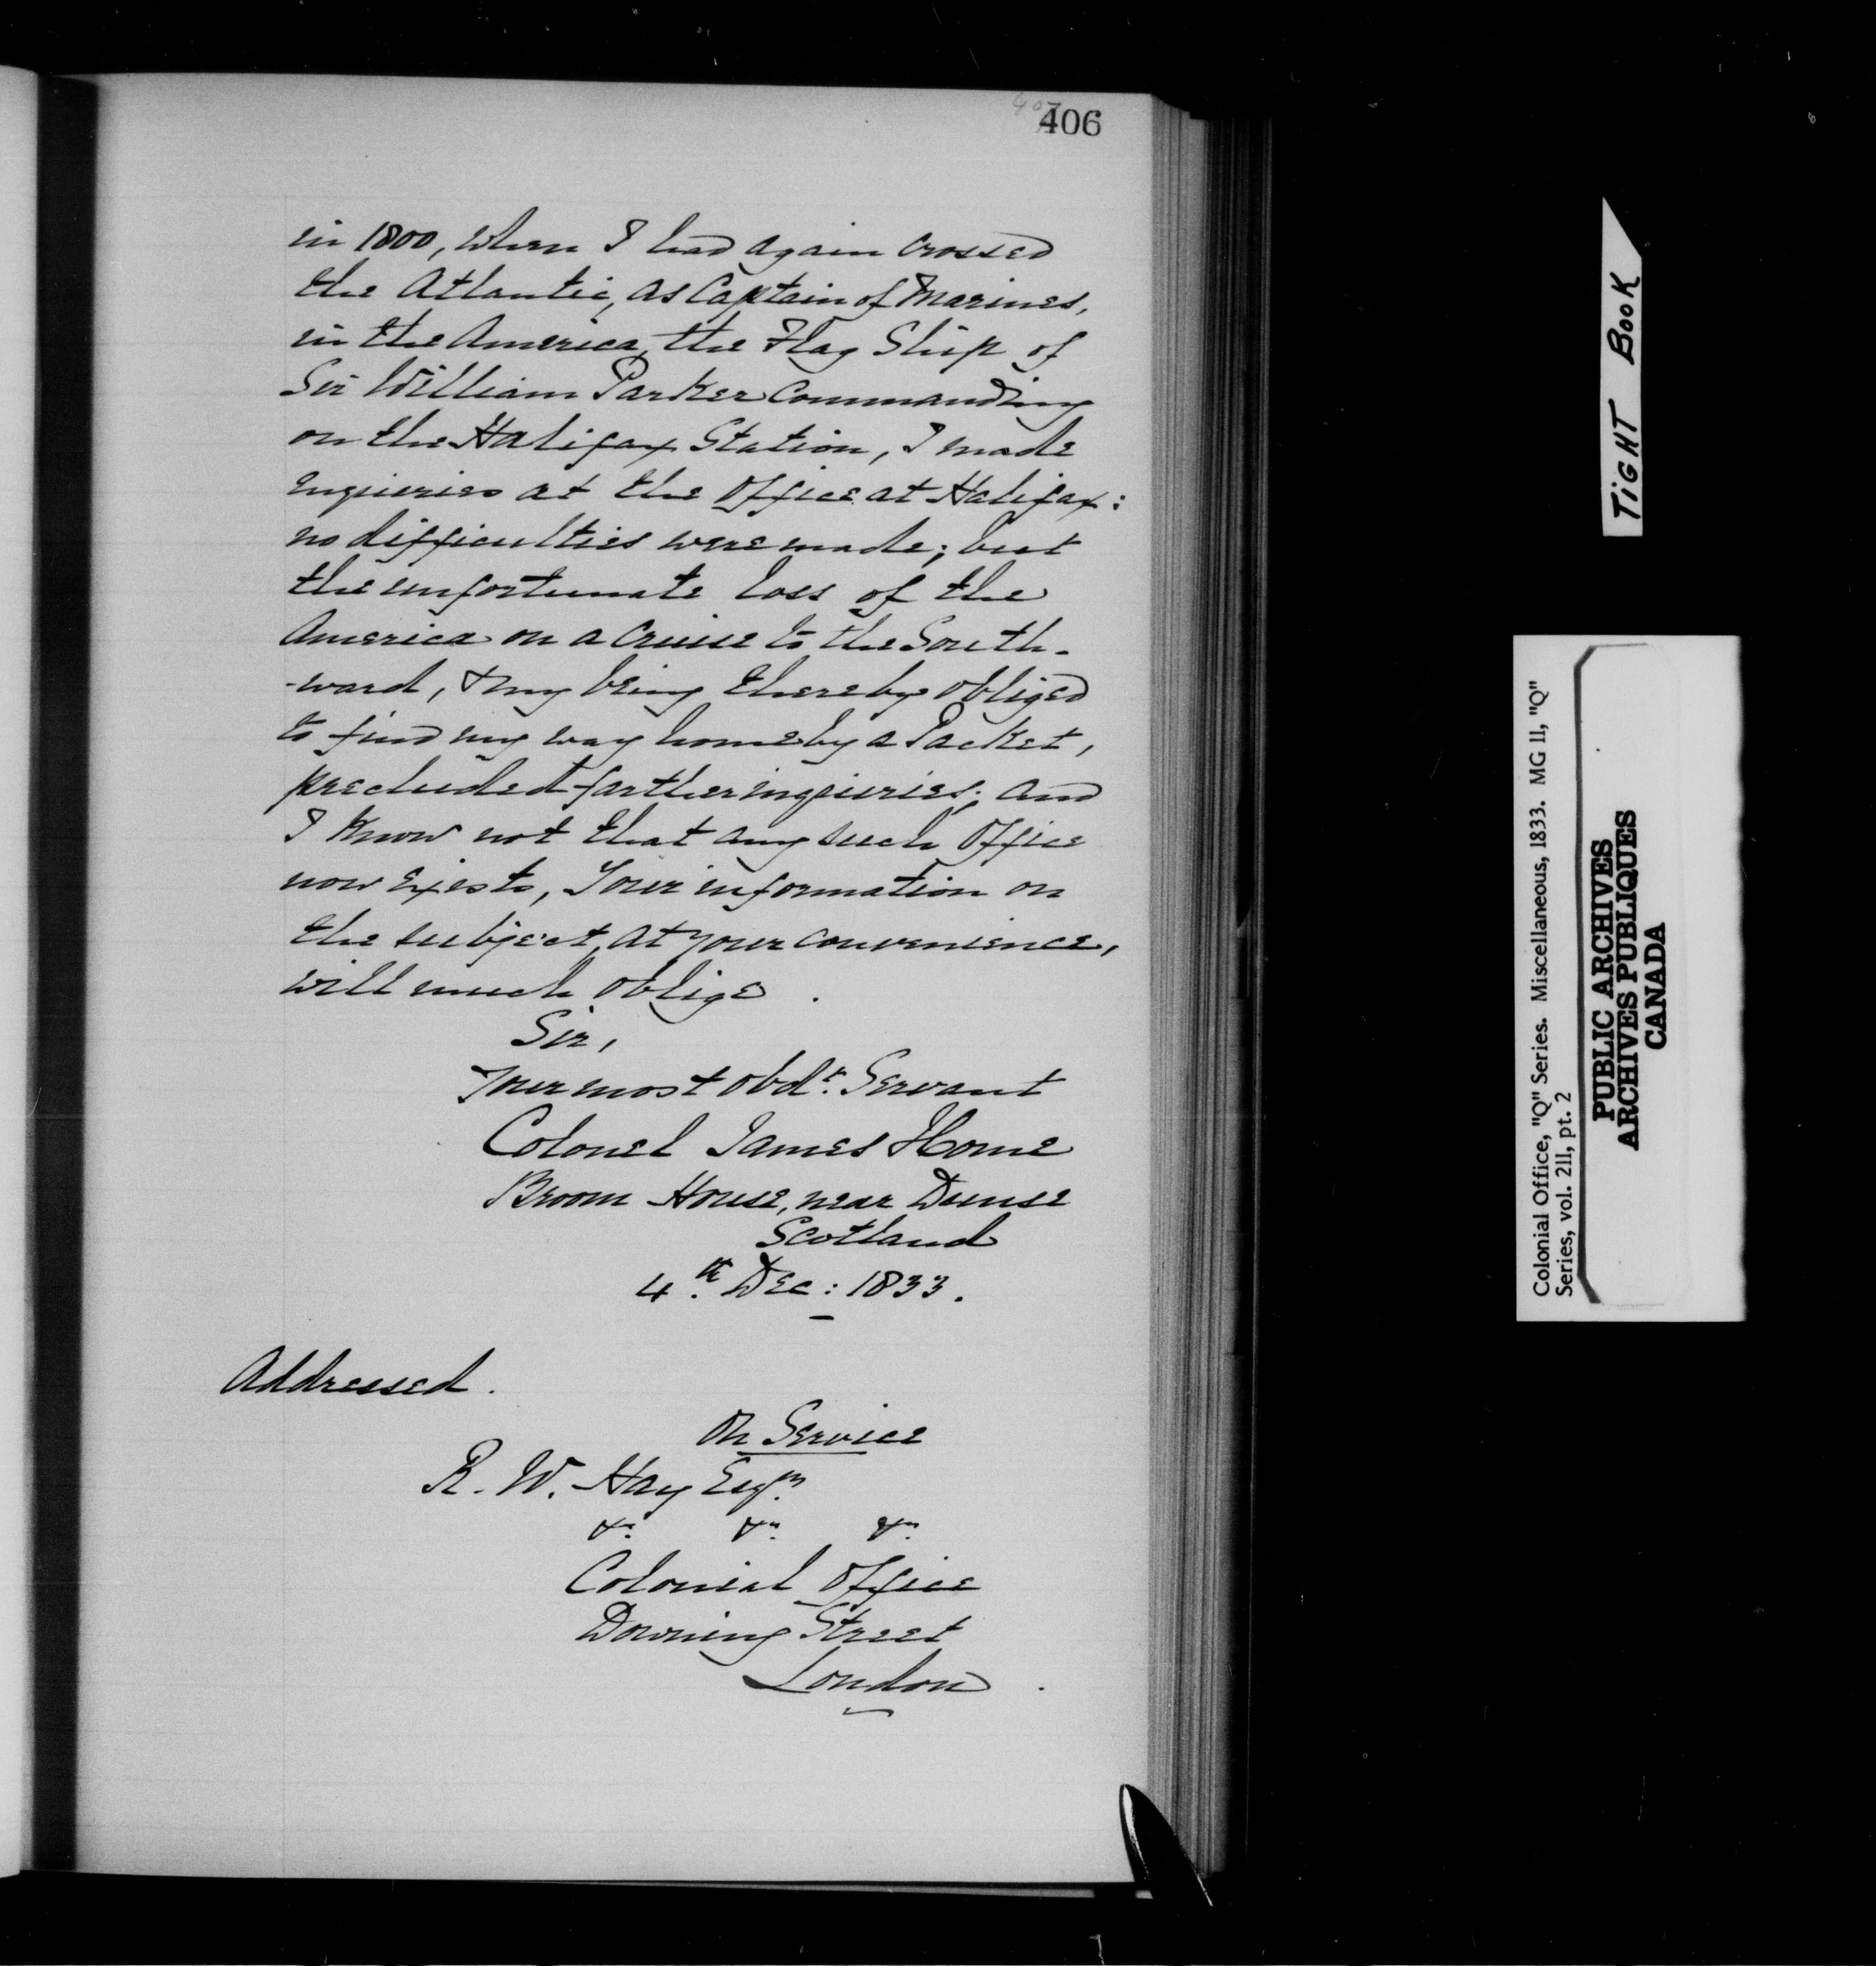 406
in 1800, when I had again crossed
the Atlantic, as Captain of Marines,
in the America, the Flag Ship of
Sir William Parker Commanding
on the Halifax Station, I made
enquiries at the Office at Halifax:
no difficulties were made; but
the unfortunate loss of the
America on a Cruise to the South-
-ward, & my being thereby obliged
to find my way home by a Packet,
precluded farther inquiries; and
I know not that any such Office
now exists, Your information on
the subject, at your convenience,
will much oblige.
Sir,
Your most obdt. Servant
Colonel James Home
Broom House, near Dunse
Scotland
4th. Dec: 1833.
Addressed.
On Service
R. W. Hay Esqr.
&c. &c. &c.
Colonial Office
Downing Street
London.
TIGHT BOOK
Colonial Office, "Q" Series. Miscellaneous, 1833. MG 11, "Q"
Series, vol. 211, pt. 2
PUBLIC ARCHIVES
ARCHIVES PUBLIQUES
CANADA